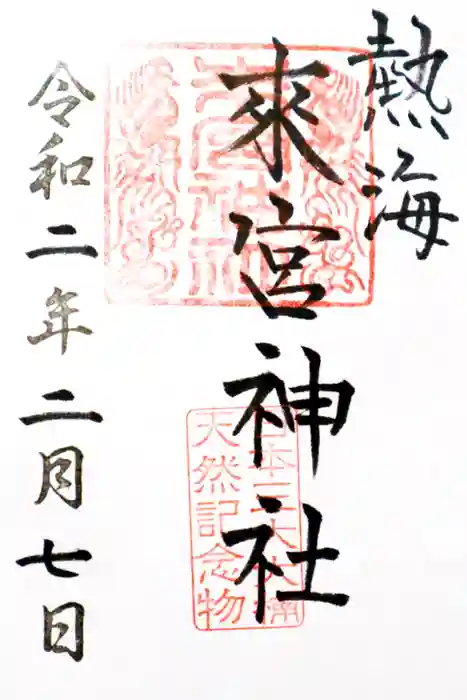 熱海
來宮神社
天然記念物
令和二年二月七日